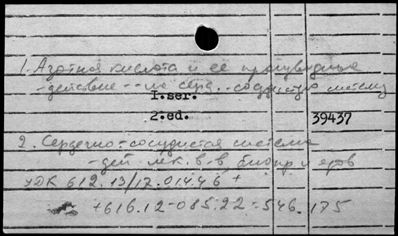 1. Азотная кислота и её производные
- действие -- на серд.-сосудистую систему
I.ser.
2.ed.
39437
2. Сердечно-сосудистая система
- дей. лек. в-в
УДК 612.13/17.014.46 +
+616.12-085.22:546.175